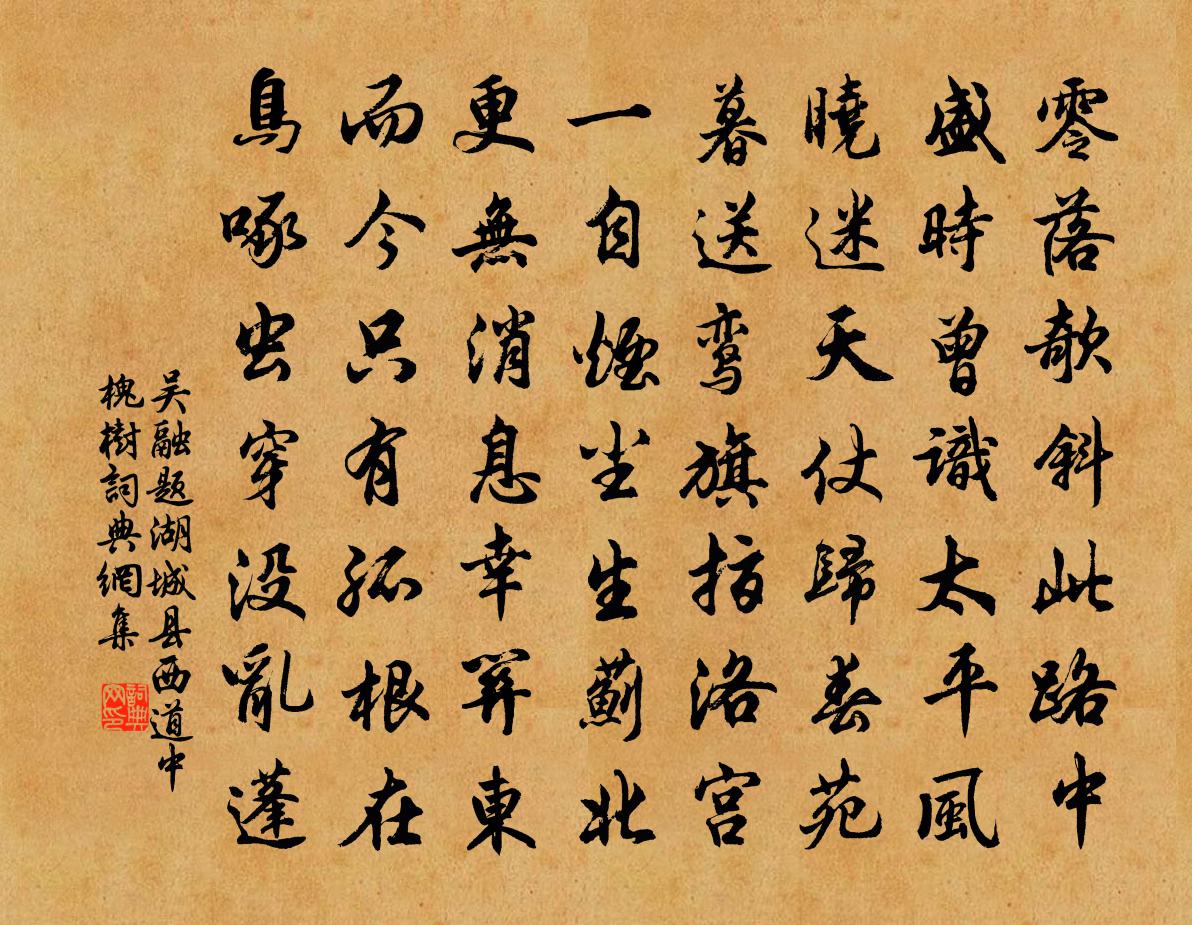 零落欹斜此路中
盛時曾識太平風
曉迷天仗歸春苑
暮送鸾旗指洛宫
一自煙尘生薊北
更無消息幸關東
而今只有孤根在
鳥啄虫穿没亂蓬
吴融题湖城县西道中
槐樹詞典網集
詞典
网印